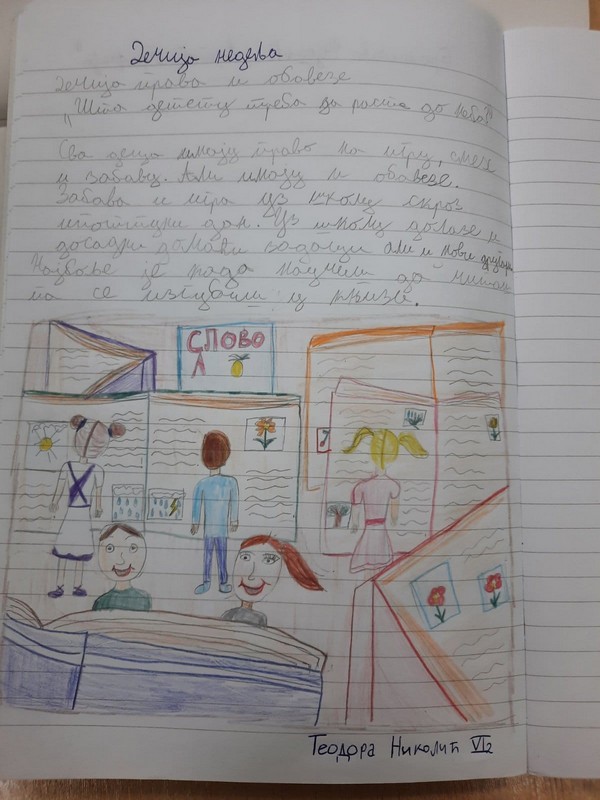 Дечија недеља
Дечија права и обавезе
„Шта детету треба да расте до неба?"
Сва деца имају право на игру, смех
и забаву. Али имају и обавезе.
Забава и игра уз школу скроз
употпуни дан. Уз школу долазе и
досадни домаћи задаци али и нови другари
Најбоље је када научиш да читаш
па се изгубиш у књизи.
СЛОВО
Л
Теодора Николић VI2